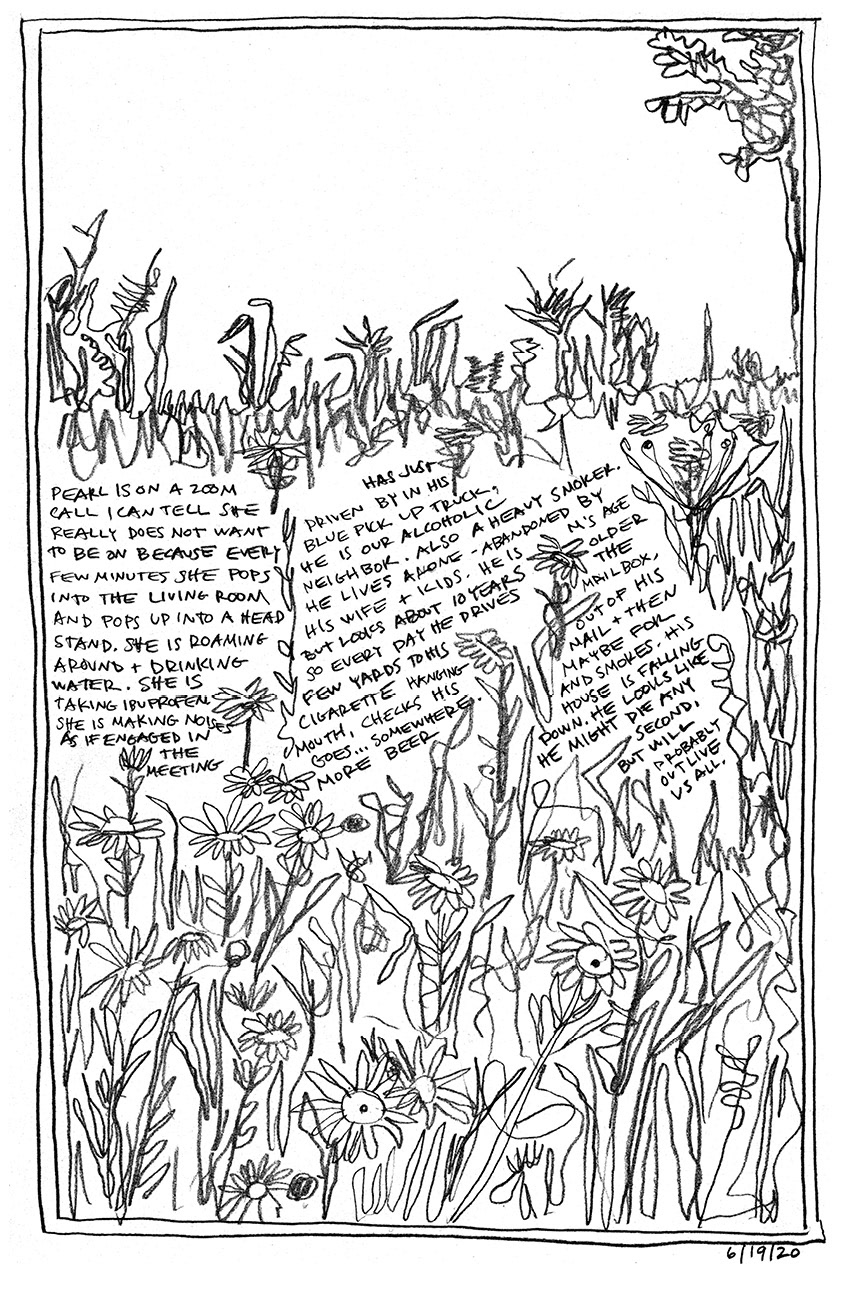 PEARL IS ON A ZOOM
CALL I CAN TELL SHE
REALLY DOES NOT WANT
TO BE ON BECAUSE EVERY
FEW MINUTES SHE POPS
INTO THE LIVING ROOM
AND POPS UP INTO A HEAD
STAND. SHE IS ROAMING
AROUND + DRINKING
WATER. SHE IS
TAKING IBUPROFEN.
SHE IS MAKING NOISES
AS IF ENGAGED IN
THE
MEETING
HAS JUST
DRIVEN BY IN HIS
BLUE PICK UP TRUCK,
HE IS OUR ALCOHOLIC
NEIGHBOR. ALSO A HEAVY SMOKER.
HE LIVES ALONE - ABANDONED BY
HIS WIFE + KIDS. HE IS N'S AGE
BUT LOOKS ABOUT 10 YEARS OLDER
SO EVERY DAY HE DRIVES THE
FEW YARDS TO HIS MAILBOX,
CIGARETTE HANGING OUT OF HIS
MOUTH, CHECKS HIS MAIL + THEN
GOES... SOMEWHERE, MAYBE FOR
MORE BEER AND SMOKES. HIS
HOUSE IS FALLING
DOWN. HE LOOKS LIKE
HE MIGHT DIE ANY
SECOND,
BUT WILL
PROBABLY
OUTLIVE
US ALL.
6/19/20